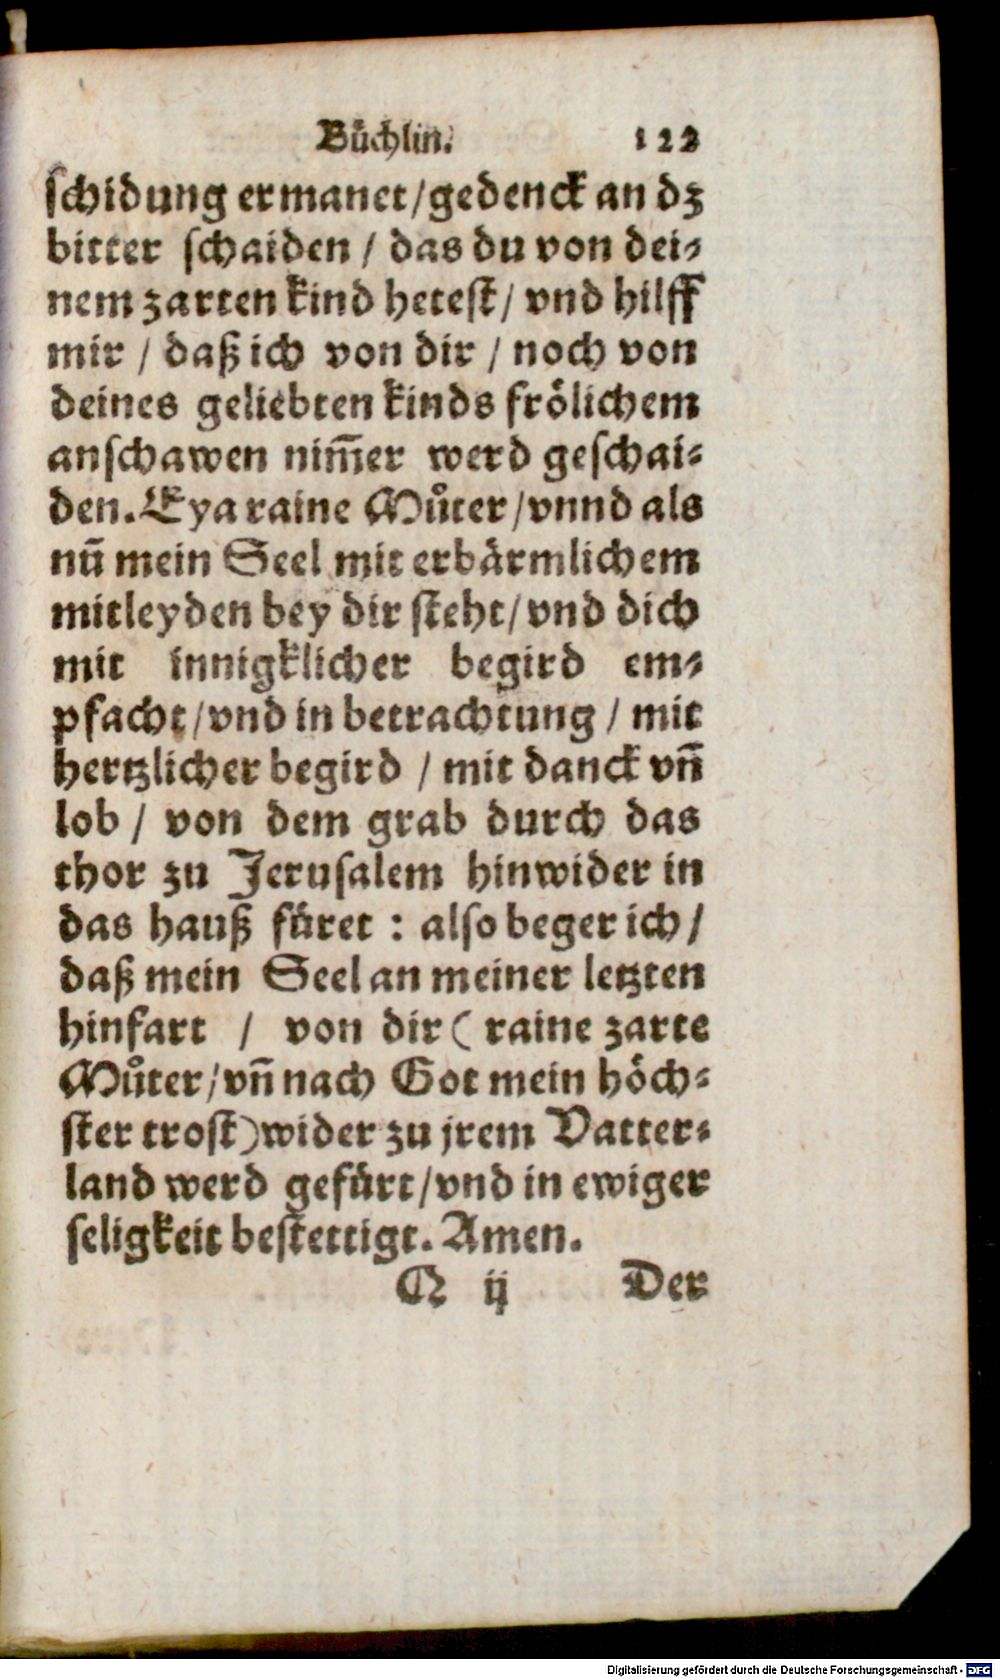 Büchlin. 122
schidung ermanet/gedenck an dz
bitter schaiden / das du von dei⸗
nem zarten kind hetest/ vnd hilff
mir / daß ich von dir / noch von
deines geliebten kinds frölichem
anschawen nim̃er werd geschai⸗
den. Eya raine Můter/vnnd als
nũ mein Seel mit erbärmlichem
mitleyden bey dir steht/vnd dich
mit innigklicher begird em⸗
pfacht/vnd in betrachtung / mit
hertzlicher begird / mit danck vñ
lob / von dem grab durch das
thor zu Jerusalem hinwider in
das hauß füret : also beger ich/
daß mein Seel an meiner letzten
hinfart / von dir ( raine zarte
Můter/vñ nach Got mein höch⸗
ster trost) wider zu jrem Vatter⸗
land werd gefürt/vnd in ewiger
seligkeit bestettigt. Amen.
Q ij Der
Digitalisierung gefördert durch die Deutsche Forschungsgemeinschaft - DFG